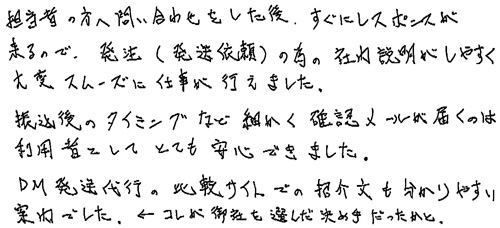 担当者の方へ問い合わせをした後、すぐにレスポンスが
来るので、発注(発送依頼)の為の社内説明がしやすく
大変スムーズに仕事が行えました。
振込後のタイミングなど細かく確認メールが届くのは
利用者としてとても安心できました。
DM発送代行の比較サイトでの紹介文も分かりやすい
案内でした。←コレが御社を選んだ決め手だったかと。